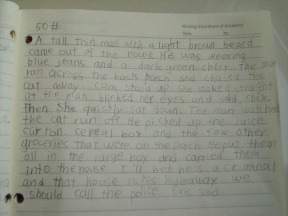 50#
A tall thin man with a light brown beard
came out of the house. He was wearing
blue jeans and a dark green shirt. The man
ran across the porch and chased the
cat away. Cam stood up. She looked straight
at the man, blinked her eyes and said, click
then she quietly sat down. The man watched
the cat run off. He picked up the juice
carton, cereal box and the few other
groceries that were on the porch. He put them
all in the large box and carried them
into the house. I'll bet he's a criminal
and that house is his hideaway we
should call the police Eric said.